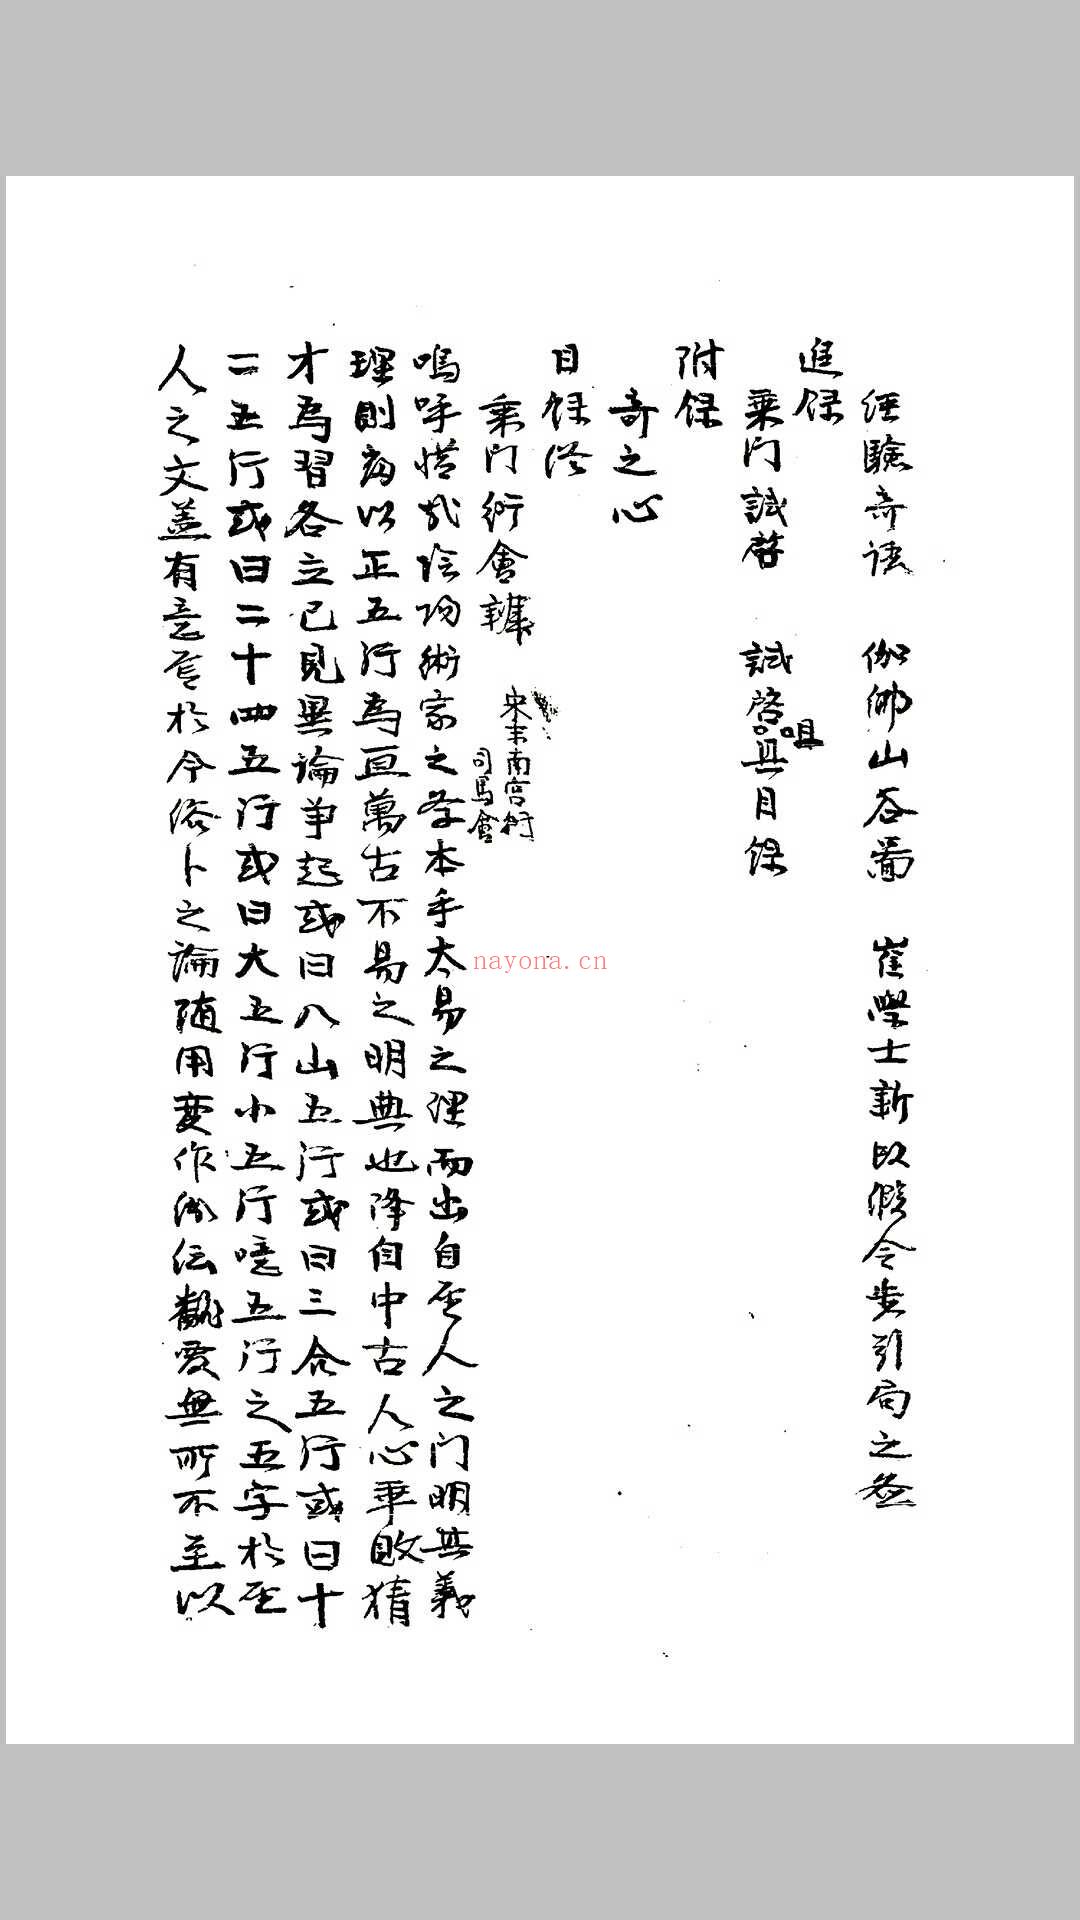 經驗奇語 伽倻山谷啚 崔學士新以候令步引局之
進錄
乘门誠啓 誠啓咀具目錄
附錄
奇之心
目錄終
乘门衍會辨 宋末南宮衍 司馬會
嗚呼惜哉陰陽術家之學本乎太易之理而出自至人之门明其義
理則為以正五行為亘萬古不易之明典也降自中古人心乖敗猜
才為習各立己見異論爭起或曰八山五行或曰三合五行或曰十
二五行或曰二十四五行或曰大五行小五行噫五行之五字於至
人之文盖有意焉於今俗卜之論隨用变作訛伝翻变無所不至以
nayona.cn